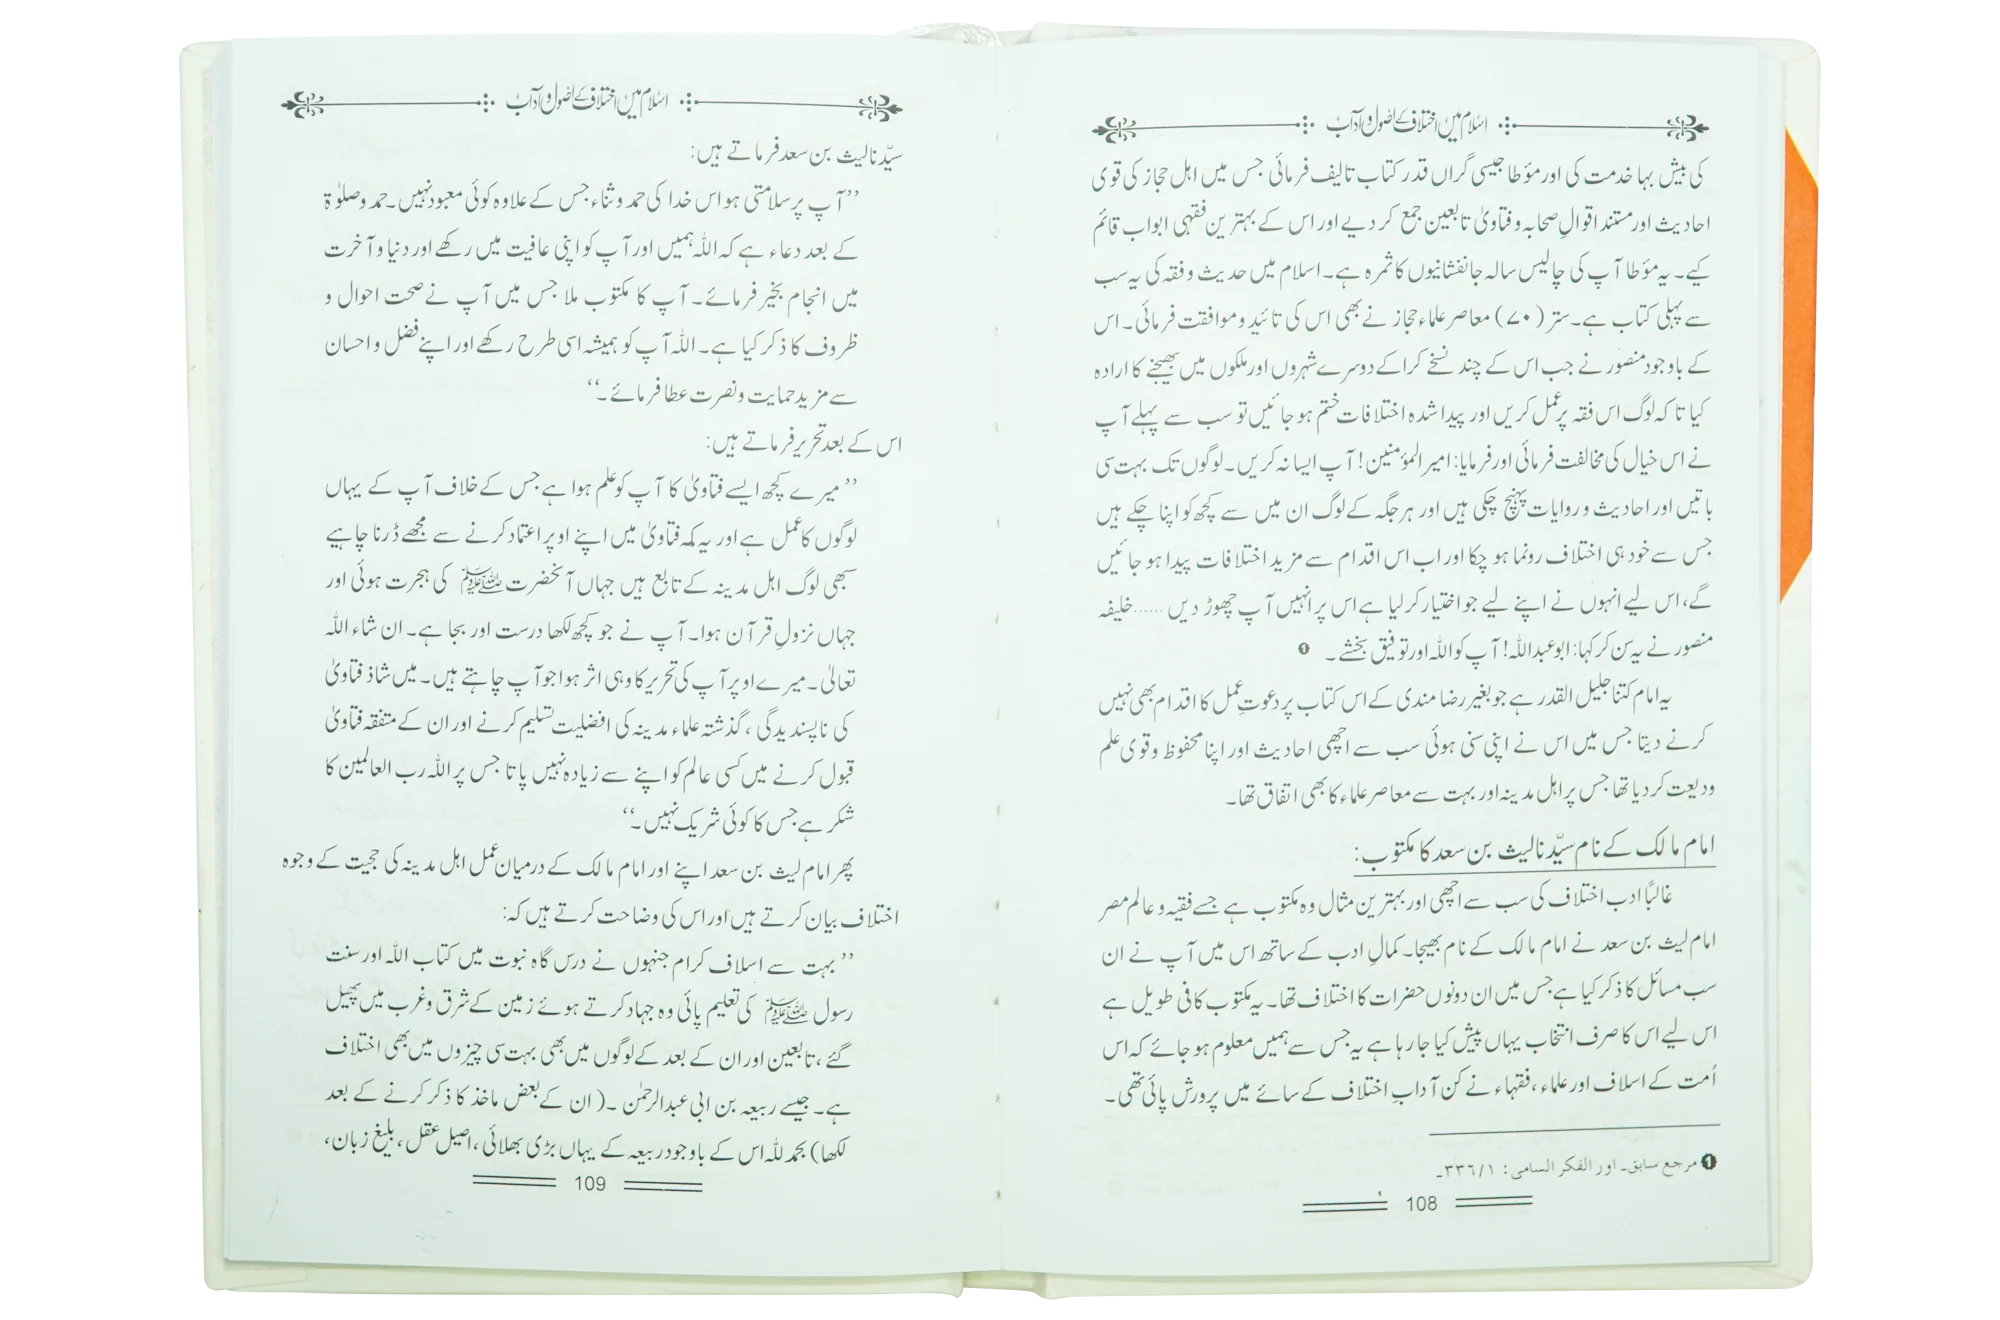 اسلام میں اختلاف کے اصول و آداب
کی بیش بہا خدمت کی اور مؤطا جیسی گراں قدر کتاب تالیف فرمائی جس میں اہل حجاز کی قوی
احادیث اور مستند اقوالِ صحابہ و فتاویٰ تابعین جمع کر دیے اور اس کے بہترین فقہی ابواب قائم
کیے۔ یہ مؤطا آپ کی چالیس سالہ جانفشانیوں کا ثمرہ ہے۔ اسلام میں حدیث و فقہ کی یہ سب
سے پہلی کتاب ہے۔ ستر (۷۰) معاصر علماء حجاز نے بھی اس کی تائید و موافقت فرمائی۔ اس
کے باوجود منصور نے جب اس کے چند نسخے کرا کے دوسرے شہروں اور ملکوں میں بھیجنے کا ارادہ
کیا تا کہ لوگ اس فقہ پر عمل کریں اور پیدا شدہ اختلافات ختم ہو جائیں تو سب سے پہلے آپ
نے اس خیال کی مخالفت فرمائی اور فرمایا: امیر المؤمنین! آپ ایسا نہ کریں۔ لوگوں تک بہت سی
باتیں اور احادیث و روایات پہنچ چکی ہیں اور ہر جگہ کے لوگ ان میں سے کچھ کو اپنا چکے ہیں
جس سے خود ہی اختلاف رونما ہو چکا اور اب اس اقدام سے مزید اختلافات پیدا ہو جائیں
گے، اس لیے انہوں نے اپنے لیے جو اختیار کر لیا ہے اس پر انہیں آپ چھوڑ دیں ...... خلیفہ
منصور نے یہ سن کر کہا: ابو عبداللہ! آپ کو اللہ اور توفیق بخشے۔ ❶
یہ امام کتنا جلیل القدر ہے جو بغیر رضا مندی کے اس کتاب پر دعوتِ عمل کا اقدام بھی نہیں
کرنے دیتا جس میں اس نے اپنی سنی ہوئی سب سے اچھی احادیث اور اپنا محفوظ و قوی علم
ودیعت کر دیا تھا جس پر اہل مدینہ اور بہت سے معاصر علماء کا بھی اتفاق تھا۔
امام مالک کے نام سیّدنا لیث بن سعد کا مکتوب:
غالبًا ادب اختلاف کی سب سے اچھی اور بہترین مثال وہ مکتوب ہے جسے فقیہ و عالم مصر
امام لیث بن سعد نے امام مالک کے نام بھیجا۔ کمالِ ادب کے ساتھ اس میں آپ نے ان
سب مسائل کا ذکر کیا ہے جس میں ان دونوں حضرات کا اختلاف تھا۔ یہ مکتوب کافی طویل ہے
اس لیے اس کا صرف انتخاب یہاں پیش کیا جا رہا ہے یہ جس سے ہمیں معلوم ہو جائے کہ اس
اُمت کے اسلاف اور علماء، فقہاء نے کن آدابِ اختلاف کے سائے میں پرورش پائی تھی۔
❶ مرجع سابق۔ اور الفکر السامی: ۱/۳۳۶۔
108
اسلام میں اختلاف کے اصول و آداب
سیّدنا لیث بن سعد فرماتے ہیں:
’’آپ پر سلامتی ہو اس خدا کی حمد و ثناء جس کے علاوہ کوئی معبود نہیں۔ حمد و صلوٰۃ
کے بعد دعاء ہے کہ اللہ ہمیں اور آپ کو اپنی عافیت میں رکھے اور دنیا و آخرت
میں انجام بخیر فرمائے۔ آپ کا مکتوب ملا جس میں آپ نے صحت احوال و
ظروف کا ذکر کیا ہے۔ اللہ آپ کو ہمیشہ اسی طرح رکھے اور اپنے فضل و احسان
سے مزید حمایت و نصرت عطا فرمائے۔‘‘
اس کے بعد تحریر فرماتے ہیں:
’’میرے کچھ ایسے فتاویٰ کا آپ کو علم ہوا ہے جس کے خلاف آپ کے یہاں
لوگوں کا عمل ہے اور یہ کہ فتاویٰ میں اپنے اوپر اعتماد کرنے سے مجھے ڈرنا چاہیے
سبھی لوگ اہل مدینہ کے تابع ہیں جہاں آنحضرت ﷺ کی ہجرت ہوئی اور
جہاں نزولِ قرآن ہوا۔ آپ نے جو کچھ لکھا درست اور بجا ہے۔ ان شاء اللہ
تعالیٰ۔ میرے اوپر آپ کی تحریر کا وہی اثر ہوا جو آپ چاہتے ہیں۔ میں شاذ فتاویٰ
کی ناپسندیدگی، گذشتہ علماء مدینہ کی افضلیت تسلیم کرنے اور ان کے متفقہ فتاویٰ
قبول کرنے میں کسی عالم کو اپنے سے زیادہ نہیں پاتا جس پر اللہ رب العالمین کا
شکر ہے جس کا کوئی شریک نہیں۔‘‘
پھر امام لیث بن سعد اپنے اور امام مالک کے درمیان عمل اہل مدینہ کی حجیت کے وجوہ
اختلاف بیان کرتے ہیں اور اس کی وضاحت کرتے ہیں کہ:
’’بہت سے اسلاف کرام جنہوں نے درس گاہ نبوت میں کتاب اللہ اور سنت
رسول ﷺ کی تعلیم پائی وہ جہاد کرتے ہوئے زمین کے شرق و غرب میں پھیل
گئے، تابعین اور ان کے بعد کے لوگوں میں بھی بہت سی چیزوں میں بھی اختلاف
ہے۔ جیسے ربیعہ بن ابی عبدالرحمٰن ۔ (ان کے بعض ماخذ کا ذکر کرنے کے بعد
لکھا) بحمد للہ اس کے باوجود ربیعہ کے یہاں بڑی بھلائی، اصیل عقل، بلیغ زبان،
109